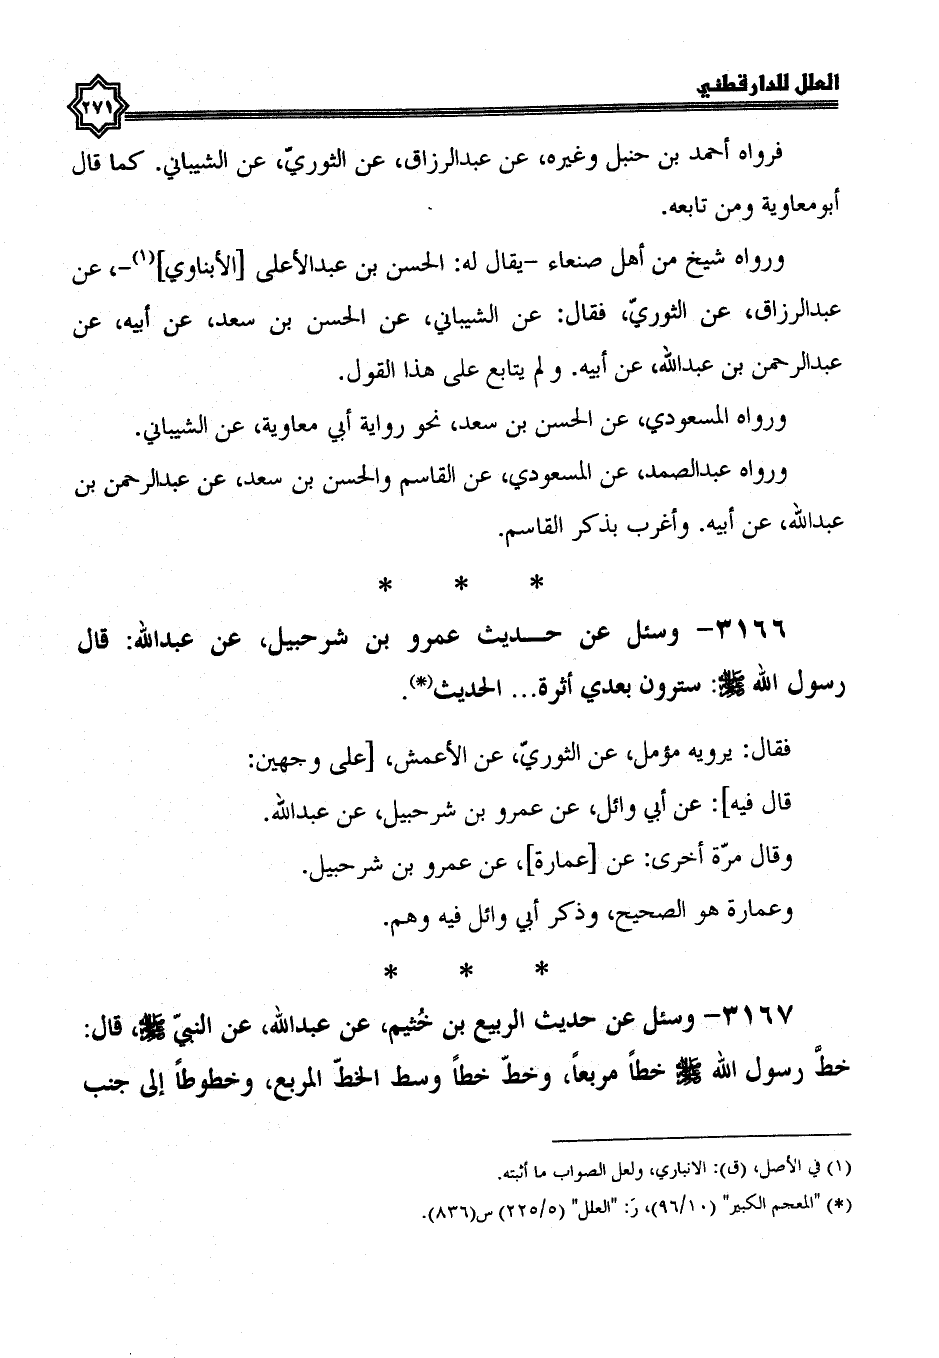 العلل للدارقطني
٢٧١
فرواه أحمد بن حنبل وغيره، عن عبدالرزاق، عن الثوريّ، عن الشيباني. كما قال
أبومعاوية ومن تابعه.
ورواه شيخ من أهل صنعاء –يقال له: الحسن بن عبدالأعلى [الأبناوي](١)–، عن
عبدالرزاق، عن الثوريّ، فقال: عن الشيباني، عن الحسن بن سعد، عن أبيه، عن
عبدالرحمن بن عبدالله، عن أبيه. و لم يتابع على هذا القول.
ورواه المسعودي، عن الحسن بن سعد، نحو رواية أبي معاوية، عن الشيباني.
ورواه عبدالصمد، عن المسعودي، عن القاسم والحسن بن سعد، عن عبدالرحمن بن
عبدالله، عن أبيه. وأغرب بذكر القاسم.
* * *
٣١٦٦– وسئل عن حـــديث عمرو بن شرحبيل، عن عبدالله: قال
رسول الله ﷺ: سترون بعدي أثرة... الحديث(*).
فقال: يرويه مؤمل، عن الثوريّ، عن الأعمش، [على وجهين:
قال فيه]: عن أبي وائل، عن عمرو بن شرحبيل، عن عبدالله.
وقال مرّة أخرى: عن [عمارة]، عن عمرو بن شرحبيل.
وعمارة هو الصحيح، وذكر أبي وائل فيه وهم.
* * *
٣١٦٧– وسئل عن حديث الربيع بن خُثيم، عن عبدالله، عن النبيّ ﷺ، قال:
خطَّ رسول الله ﷺ خطاً مربعاً، وخطّ خطاً وسط الخطّ المربع، وخطوطاً إلى جنب
(١) في الأصل، (ق): الانباري، ولعل الصواب ما أثبته.
(*) "المعجم الكبير" (٩٦/١٠)، رَ: "العلل" (٢٢٥/٥) س(٨٣٦).